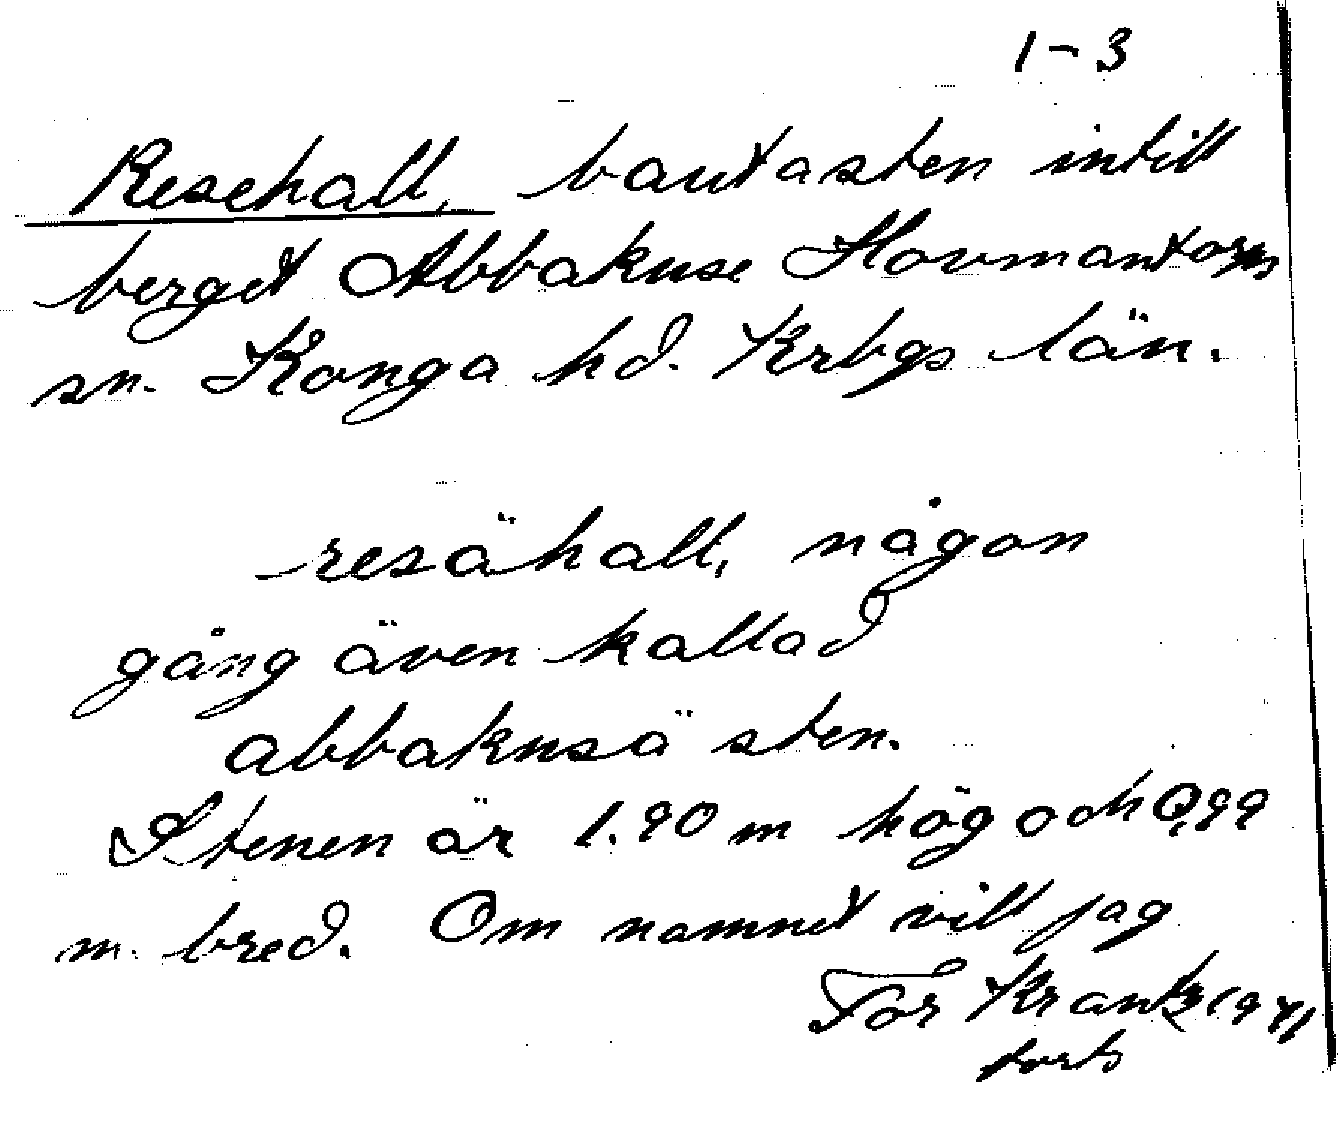 1-3
Resehall, bautasten intill
berget Abbakuse Hovmantorps
sn. Konga hd. Krbgs län.
resähall, någon
gång även kallad
abbakusä sten.
Stenen är 1.90 m hög och 0,99
m. bred. Om namnet vill jag
Tor Krantz 1941
forts